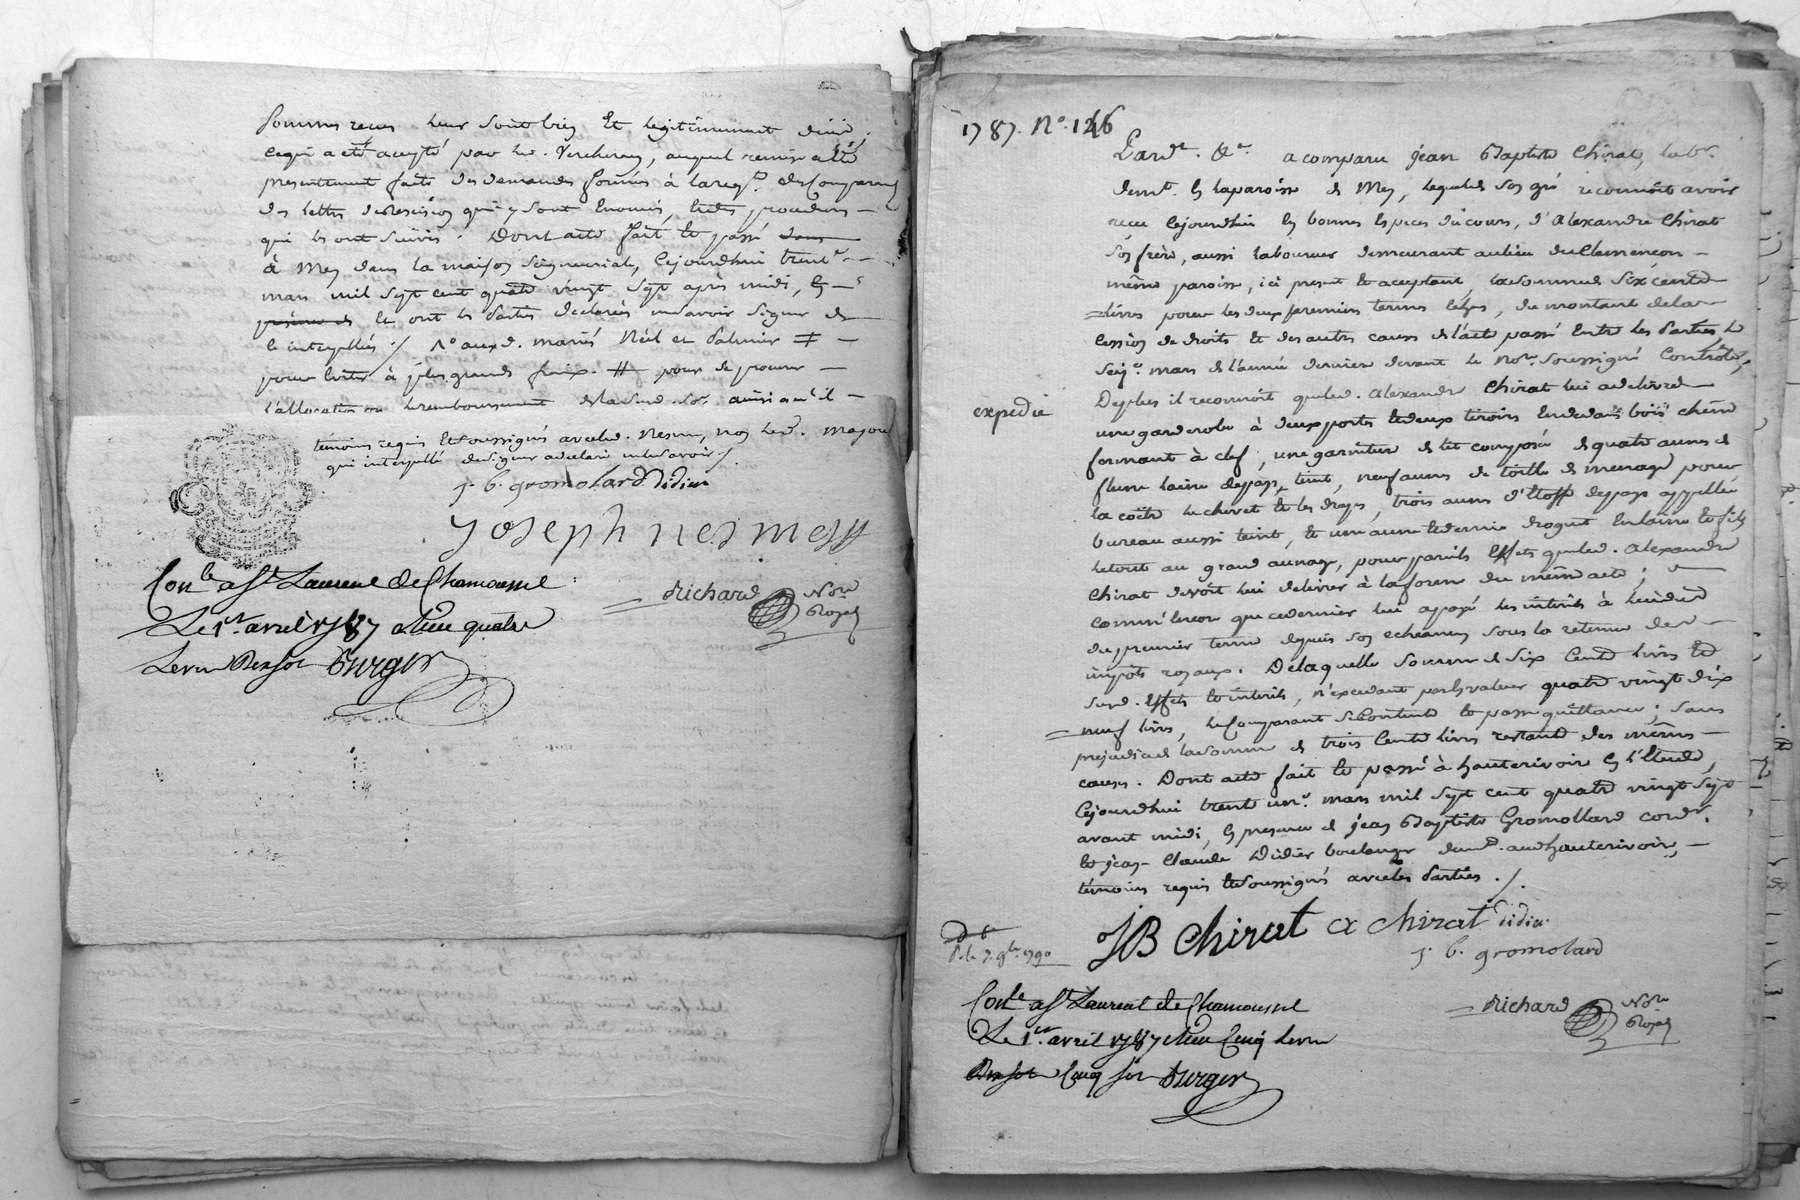 sommes reçues leur sont bien et légitimement dües
ce qui a été acepté par led. Vercherey, auquel remise a été
présentement faite des demandes formées à la req.te des Comparants
des lettres de rescision qui y sont énoncés, et des procédures
qui les ont suivis. Dont acte fait et passé dans
à Mey dans la maison seigneuriale, cejourdhui trente
mars mil sept cent quatre vingt sept après midi, en
présence de et ont les parties déclarées ne savoir signer de
ce interpellés ./. auxd. mariés Néel et Palmier #
pour éviter à plus grands fraix. # pour se pourvoir
l'allocation ou remboursement de lad. so.e ainsi qu'il
témoins requis et soussignés avec led. Nesme, non led. Mayoud
qui interpellé de signer a déclaré ne le savoir ./.
j. b. gromolard Didier
Joseph nesme
Con.lé a St Laurent de Chamousset
Le 1er. avril 1787 Reçu quatre
livres Dix sols Turger
Richard Not.re Royal
1787. N.o 126
Pard.t &.a a comparu jean Baptiste Chirat, lab.r
dem.t en la paroisse de Mey, lequel de son gré reconnoit avoir
reçu cejourdhui en bonnes espèces du cours, d'Alexandre Chirat
son frère, aussi laboureur demeurant au lieu du Clemençon
même paroisse, ici présent et aceptant, la somme de six cents
livres pour les deux premiers termes échus, du montant de la
cession de droits et des autres causes de l'acte passé entre les parties le
seiz.e mars de l'année dernière devant le No.re soussigné Contrôlé,
De plus il reconnoit que led. Alexandre Chirat lui a délivré
expédié
une garderobe à deux portes et deux tiroirs en dedans bois chêne
fermant à clef, une garniture de lit composée de quatre aunes de
flenne laine de pays, teint, neuf aunes de toille de menage pour
la coëtre le chevet et les draps, trois aunes d'étoffe de pays appellée
bureau aussi teint, et une aune et demie droguet en laine et fil
le tout au grand aunage, pour pareils effets que led. Alexandre
Chirat devoit lui délivrer à la forme du même acte;
comm'encor que ce dernier lui a payé les intérêts à lui dûs
du premier terme depuis son echéance sous la retenue des
impots royaux. De laquelle somme de six cents livres et
susd. effets et intérêts, n'excédant pas en valeur quatre vingt dix
neuf livres, le Comparant se contente et passe quittance; sans
préjudice de la somme de trois cents livres restante des mêmes
causes. Dont acte fait et passé à hauterivoire en l'étude,
cejourdhui trente un.e mars mil sept cent quatre vingt sept
avant midi, en présence de jean Baptiste Gromollard cord.r
et jean-Claude Didier boulanger dem.t audhauterivoire,
témoins requis et soussignés avec les parties ./.
JB Chirat a chirat didier
j. b. gromolard
Con.lé a St Laurent de Chamousset
Le 1er. avril 1787 Reçu Cinq livres
Dix sols Cinq sols Turger
Richard Not.re Royal